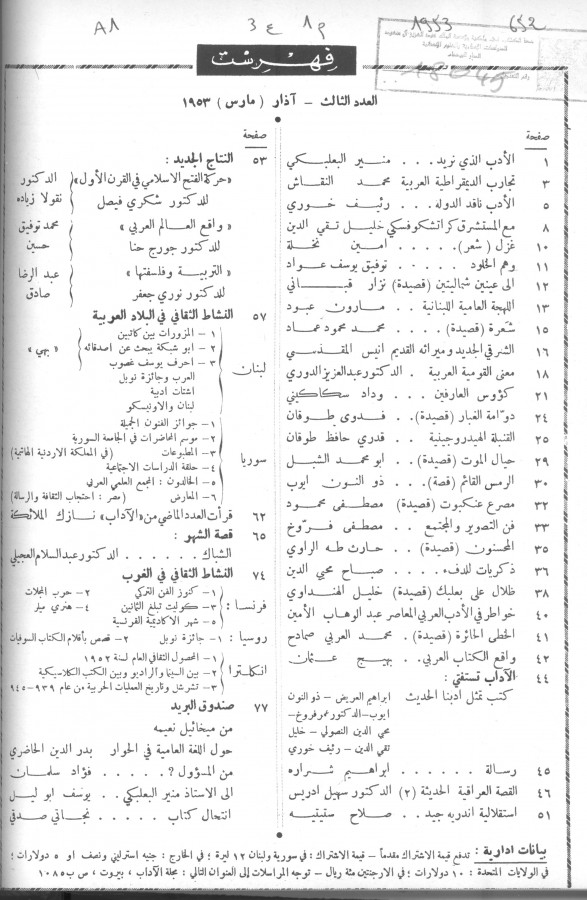 A1
م ٨ ع 3
1953
652
18049
فهرست
العدد الثالث - آذار ( مارس ) ١٩٥٣
صفحة
١ الأدب الذي نريد . . . منير البعلبكي
٣ تجارب الديمقراطية العربية محمد النقاش
٥ الأدب ناقد الدوله . . . رئيف خوري
٨ مع المستشرق كراتشكوفسكي خليل تقي الدين
١٠ غزل ( شعر ) . . . . . أمين نخلة
١١ وهم الخلود . . . . . توفيق يوسف عواد
١٢ الى عينين شماليتين ( قصيدة ) نزار قباني
١٣ اللهجة العامية اللبنانية . . مارون عبود
١٥ شعرة ( قصيدة ) . . . محمد محمود عماد
١٦ الشرقي الجديد وميراثه القديم انيس المقدسي
١٨ معنى القومية العربية . الدكتور عبدالعزيز الدوري
٢١ كؤوس العارفين . . . وداد سكاكيني
٢٤ دوّامة الغبار ( قصيدة ) . . فدوى طوقان
٢٥ القنبلة الهيدروجينية . . قدري حافظ طوقان
٢٩ حيال الموت ( قصيدة ) . . ابو محمد الشبل
٣٠ الرمس القائم ( قصة ) . . ذو النون ايوب
٣٢ مصرع عنكبوت ( قصيدة ) . مصطفى محمود
٣٣ فن التصوير والمجتمع . . مصطفى فرّوخ
٣٥ المحسنون ( قصيدة ) . . حارث طه الراوي
٣٦ ذكريات للدفء . . . صباح محي الدين
٣٨ ظلال على بعلبك ( قصيدة ) خليل الهنداوي
٤٠ خواطر في الأدب العربي المعاصر عبد الوهاب الأمين
٤١ الخطى الحائرة ( قصيدة ) . محمد العربي صمادح
٤٢ واقع الكتاب العربي . . بهيج عثمان
٤٤ الآداب تستفتي :
كتب تمثل ادبنا الحديث ابراهيم العريض - ذو النون
ايوب - الدكتور عمر فروخ -
محي الدين النصولي - خليل
تقي الدين - رئيف خوري
٤٥ رسالة . . . . . ابراهيم شراره
٤٦ القصة العراقية الحديثة (٢) الدكتور سهيل ادريس
٥١ استقلالية اندريه جيد . . صلاح ستيتية
صفحة
٥٣ النتاج الجديد :
« حركة الفتح الاسلامي في القرن الأول » الدكتور
للدكتور شكري فيصل نقولا زياده
« واقع العالم العربي » محمد توفيق
للدكتور جورج حنا حسين
« التربية وفلسفتها » عبد الرضا
للدكتور نوري جعفر صادق
٥٧ النشاط الثقافي في البلاد العربية
لبنان
١ - المزورات بين كاتبين
٢ - ابو شبكة يبحث عن اصدقائه
٣ - احرف يوسف غصوب
« بهي »
العرب وجائزة نوبل
اشتات ادبية
لبنان والاونيسكو
سوريا
١ - جوائز الفنون الجميلة
٢ - موسم المحاضرات في الجامعة السورية
٣ - المطبوعات ( في المملكة الاردنية الهاشمية )
٤ - حلقة الدراسات الاجتماعية
٥ - الخالدون : المجمع العلمي العربي
٦ - المعارض ( مصر : احتجاب الثقافة والرسالة )
٦٢ قرأت العدد الماضي من « الآداب » نازك الملائكة
٦٥ قصة الشهر :
الشباك . . . . . الدكتور عبد السلام العجيلي
٧٤ النشاط الثقافي في الغرب
فرنسا :
١ - كنوز الفن التركي ٢ - حرب المجلات
٣ - كوليت تبلغ الثمانين ٤ - هنري ميلر
٥ - شهر الاكاديمية الفرنسية
روسيا : ١ - جائزة نوبل ٢ - قصص بأقلام الكتاب السوفيات
انكلترا
١ - المحصول الثقافي العام لسنة ١٩٥٢
٢ - بين السينما والراديو وبين الكتب الكلاسيكية
٣ - تشرشل وتاريخ العمليات الحربية من عام ٩٣٩-٩٤٥
٧٧ صندوق البريد
من ميخائيل نعيمه
حول اللغة العامية في الحوار بدر الدين الحاضري
من المسؤول ؟ . . . . فؤاد سلمان
الى الاستاذ منير البعلبكي . . يوسف ابو ليل
انتحال كتاب . . . . نجاتي صدقي
بيانات ادارية : تدفع قيمة الاشتراك مقدماً - قيمة الاشتراك : في سورية ولبنان ١٢ ليرة ؛ في الخارج : جنيه استرليني ونصف او ٥ دولارات ؛
في الولايات المتحدة : ١٠ دولارات ؛ في الارجنتين مئة ريال - توجه المراسلات الى العنوان التالي : مجلة الآداب ، بيروت ، ص ب ١٠٨٥